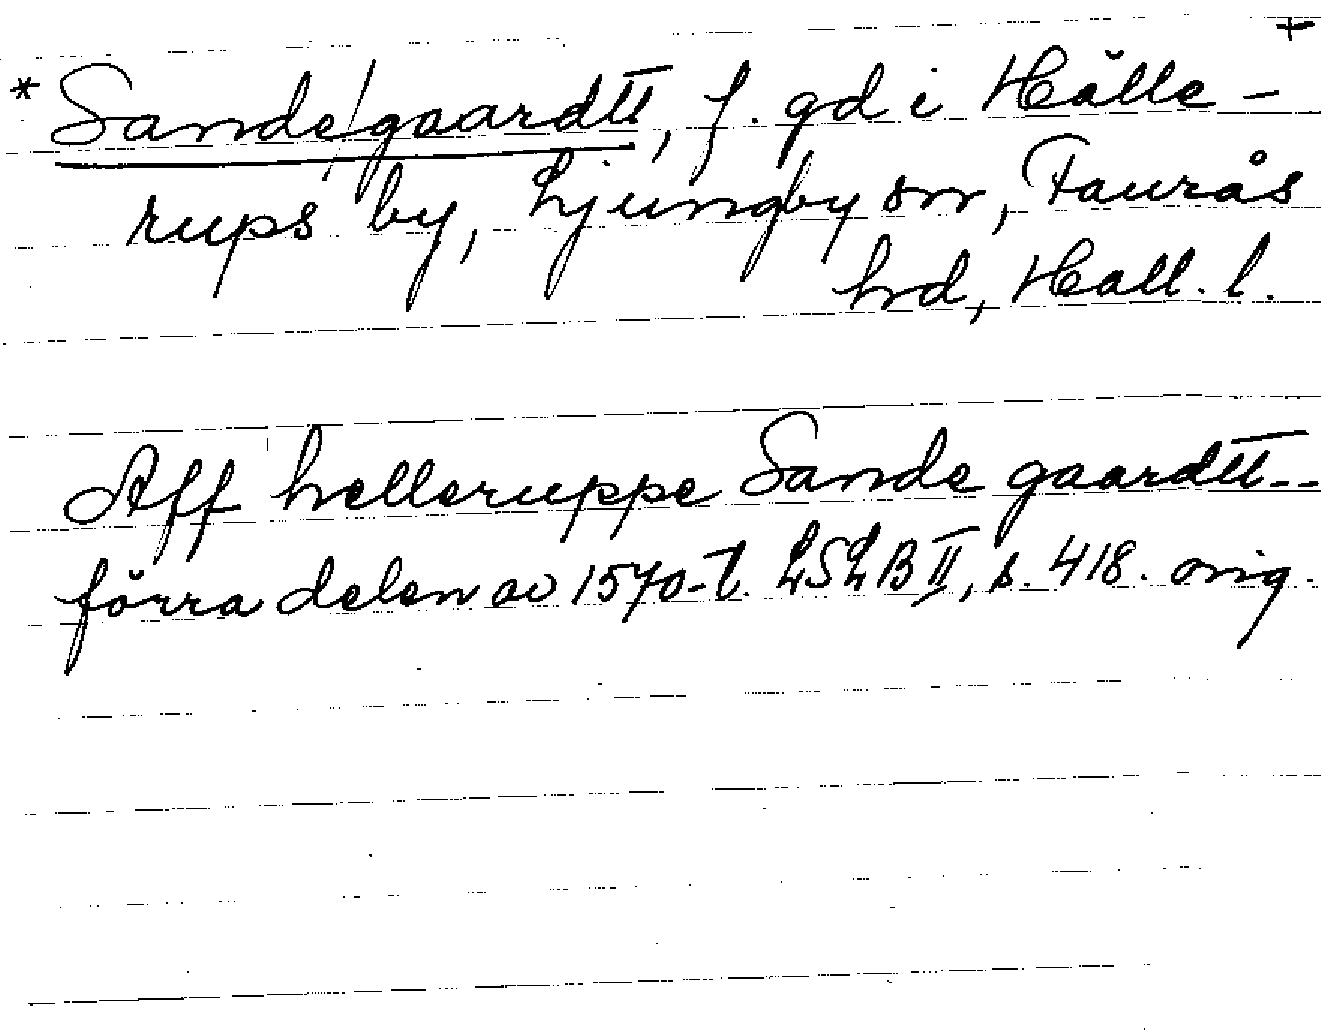 +
* Sande/gaardtt, f. gd i Hälle-
rups by, Ljungby sn, Faurås
hd, Hall. l.
Aff helleruppe Sande gaardtt--
förra delen av 1570-t. LSLB II, s. 418. orig.